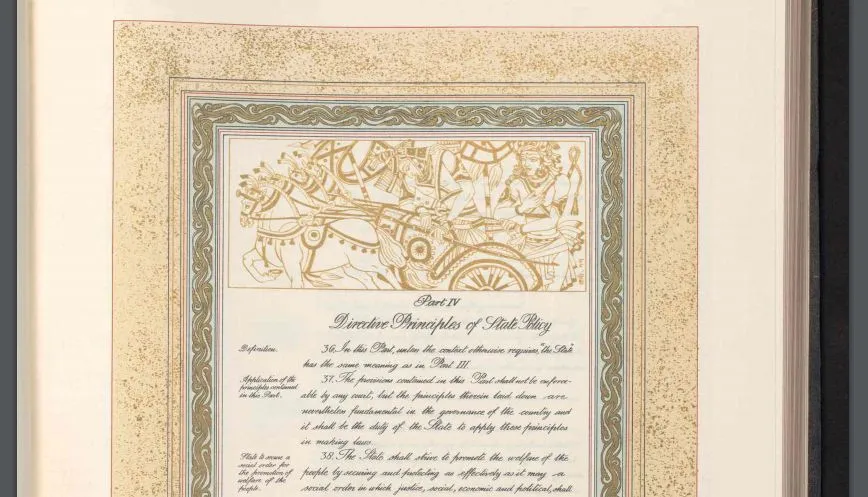 Part IV
Directive Principles of State Policy
Definition.
36. In this Part, unless the context otherwise requires, "the State"
has the same meaning as in Part III.
Application of the
principles contained
in this Part.
37. The provisions contained in this Part shall not be enforce-
able by any court, but the principles therein laid down are
nevertheless fundamental in the governance of the country and
it shall be the duty of the State to apply these principles
in making laws.
State to secure a
social order for
the promotion of
welfare of the
people.
38. The State shall strive to promote the welfare of the
people by securing and protecting as effectively as it may a
social order in which justice, social, economic and political, shall